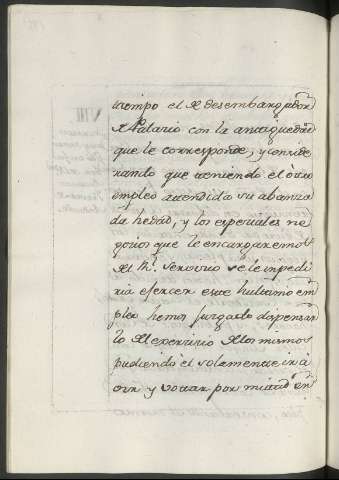 tiempo el de desembargador
de Palacio con la antiguedad
que le corresponde, y conside
rando que teniendo el otro
empleo attendida su abanza
da hedad, y los especiales ne
gocios que le encargaremos
del Rl. Servicio se le impedi
ria ejercer este hultimo em
pleo hemos juzgado dispensar
lo del exercicio de los mismos
pudiendo el solamente ir a
oir y votar por mitad en